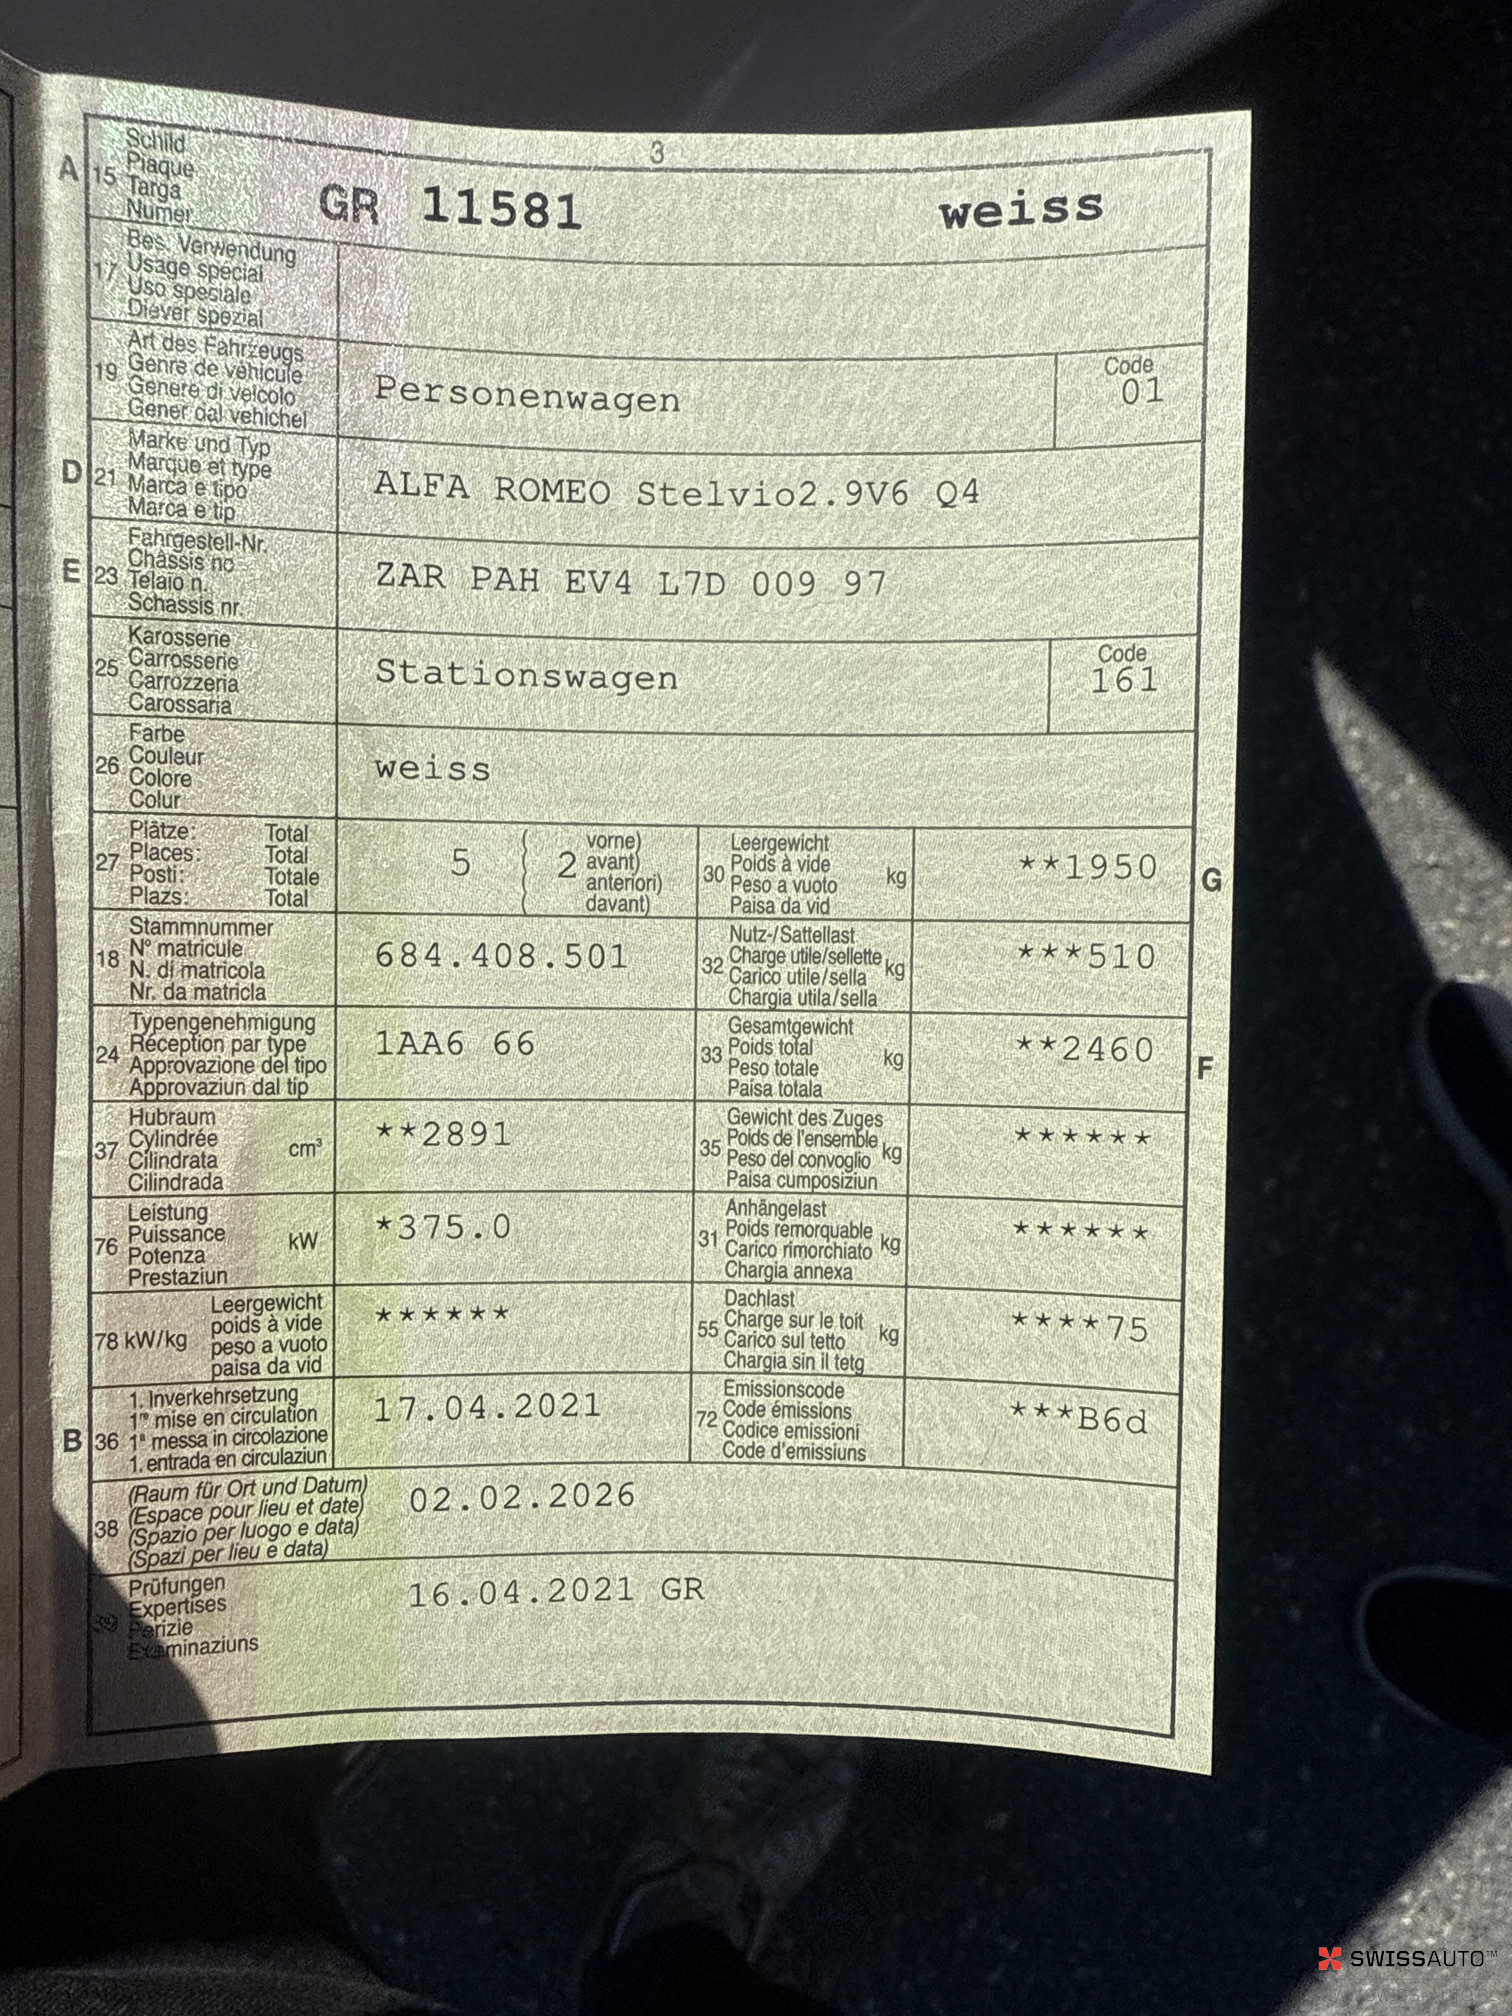 3
A 15 Schild
Plaque
Targa
Numer
GR 11581 weiss
17 Bes. Verwendung
Usage spécial
Uso speciale
Diever spezial
19 Art des Fahrzeugs
Genre de véhicule
Genere di veicolo
Gener dal vehichel
Personenwagen
Code
01
D 21 Marke und Typ
Marque et type
Marca e tipo
Marca e tip
ALFA ROMEO Stelvio2.9V6 Q4
E 23 Fahrgestell-Nr.
Châssis no
Telaio n.
Schassis nr.
ZAR PAH EV4 L7D 009 97
25 Karosserie
Carrosserie
Carrozzeria
Carossaria
Stationswagen
Code
161
26 Farbe
Couleur
Colore
Colur
weiss
27 Plätze: Total
Places: Total
Posti: Totale
Plazs: Total
5 ( 2 vorne)
avant)
anteriori)
davant)
30 Leergewicht
Poids à vide
Peso a vuoto
Paisa da vid
kg
**1950
G
18 Stammnummer
N° matricule
N. di matricola
Nr. da matricla
684.408.501
32 Nutz-/Sattellast
Charge utile/sellette
Carico utile/sella
Chargia utila/sella
kg
***510
24 Typengenehmigung
Réception par type
Approvazione del tipo
Approvaziun dal tip
1AA6 66
33 Gesamtgewicht
Poids total
Peso totale
Paisa totala
kg
**2460
F
37 Hubraum
Cylindrée
Cilindrata
Cilindrada
cm³
**2891
35 Gewicht des Zuges
Poids de l'ensemble
Peso del convoglio
Paisa cumposiziun
kg
******
76 Leistung
Puissance
Potenza
Prestaziun
kW
*375.0
31 Anhängelast
Poids remorquable
Carico rimorchiato
Chargia annexa
kg
******
78 kW/kg Leergewicht
poids à vide
peso a vuoto
paisa da vid
******
55 Dachlast
Charge sur le toit
Carico sul tetto
Chargia sin il tetg
kg
****75
B 36 1. Inverkehrsetzung
1re mise en circulation
1a messa in circolazione
1. entrada en circulaziun
17.04.2021
72 Emissionscode
Code émissions
Codice emissioni
Code d'emissiuns
***B6d
38 (Raum für Ort und Datum)
(Espace pour lieu et date)
(Spazio per luogo e data)
(Spazi per lieu e data)
02.02.2026
39 Prüfungen
Expertises
Perizie
Examinaziuns
16.04.2021 GR
SWISSAUTO™